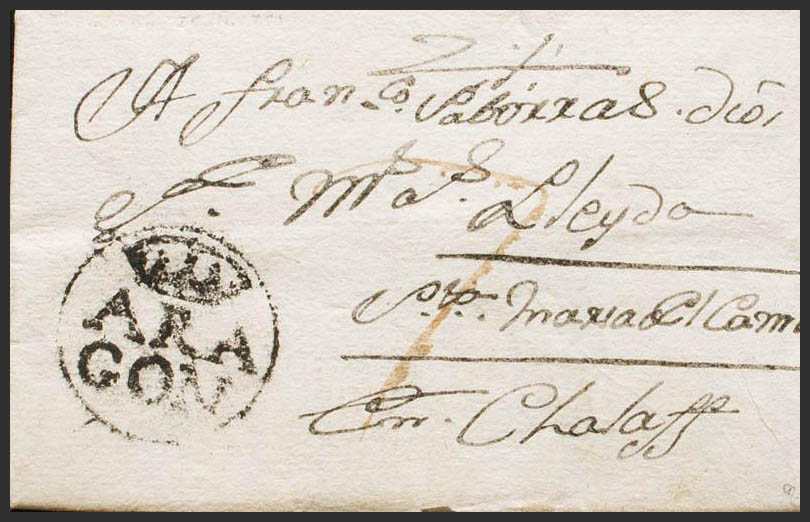 A Fran.co Saborras. Dio,
Lleyda
Sta. Maria el Cam
En. Chalaff
ARA
GON